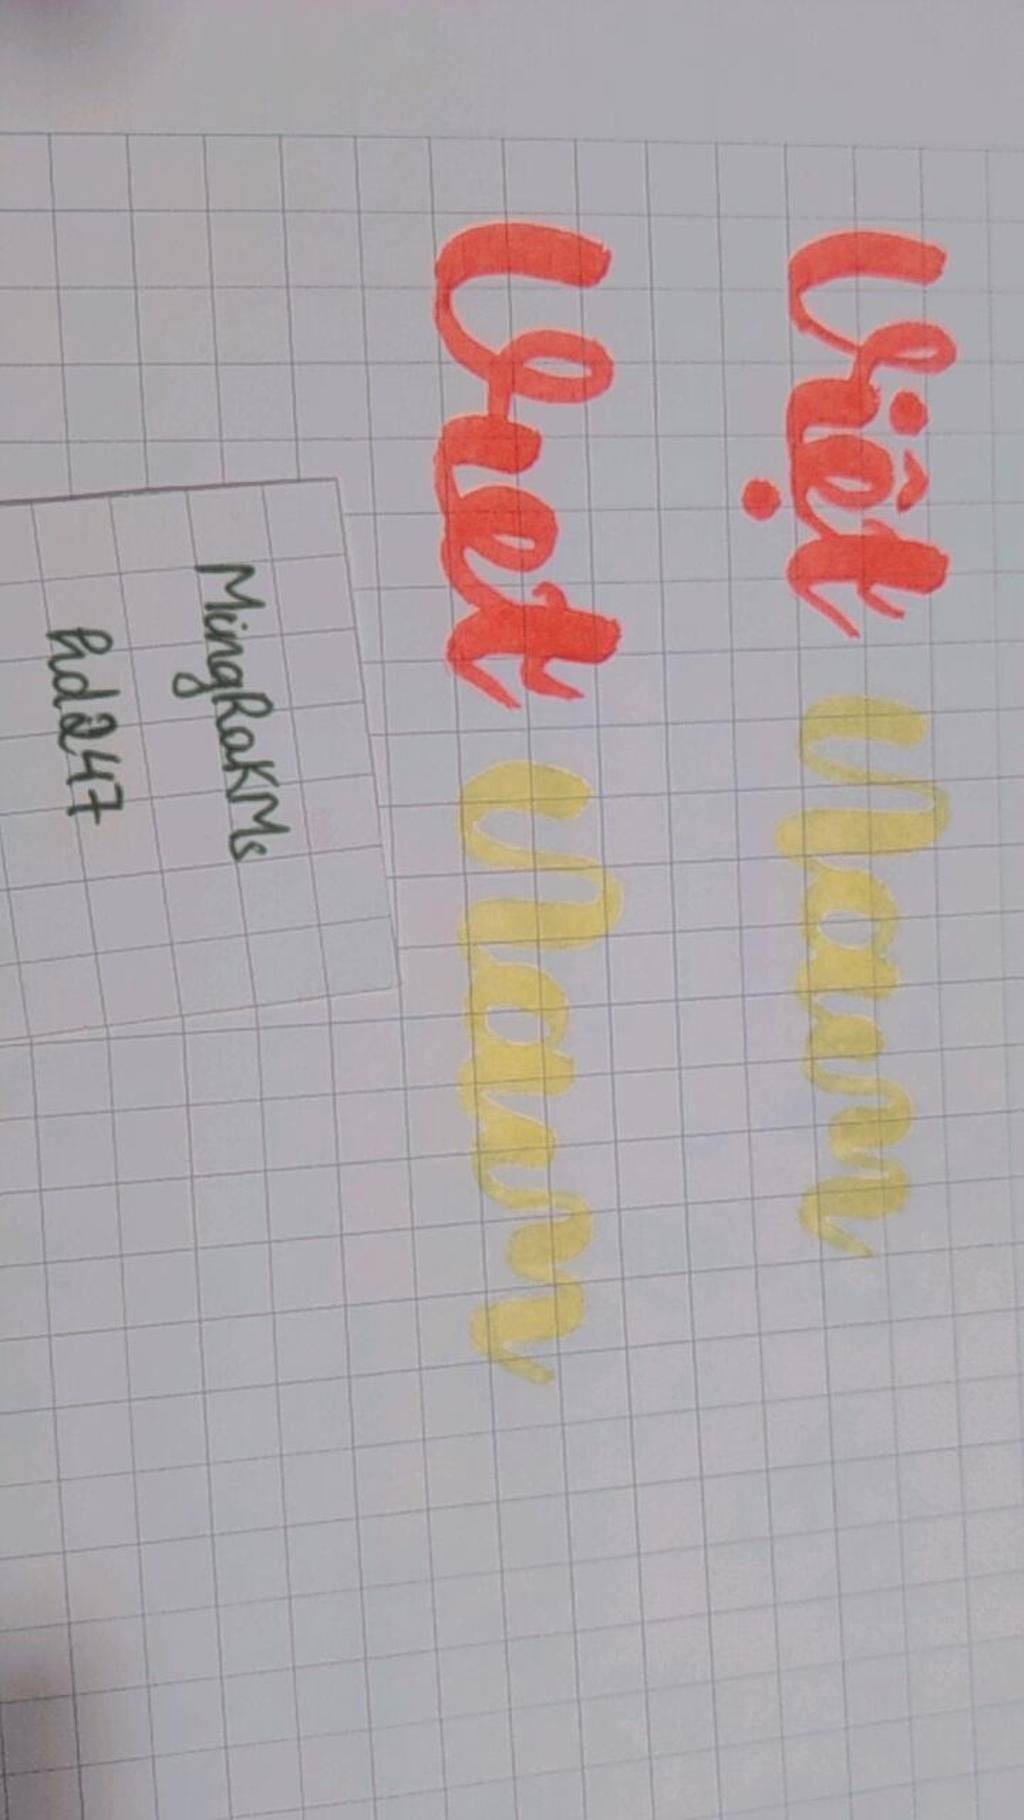 Việt Nam
Vıet Nam
MingRakMs
hd247